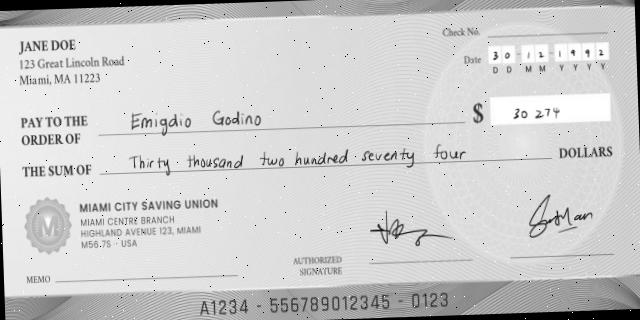 Check No.
JANE DOE
123 Great Lincoln Road
Miami, MA 11223
Date 30-12-1992
D D M M Y Y Y Y
PAY TO THE ORDER OF Emigdio Godino $ 30 274
THE SUM OF Thirty thousand two hundred seventy four DOLLARS
M
MIAMI CITY SAVING UNION
MIAMI CENTRE BRANCH
HIGHLAND AVENUE 123, MIAMI
M56.7S - USA
AUTHORIZED
SIGNATURE
MEMO
A1234 - 556789012345 - 0123